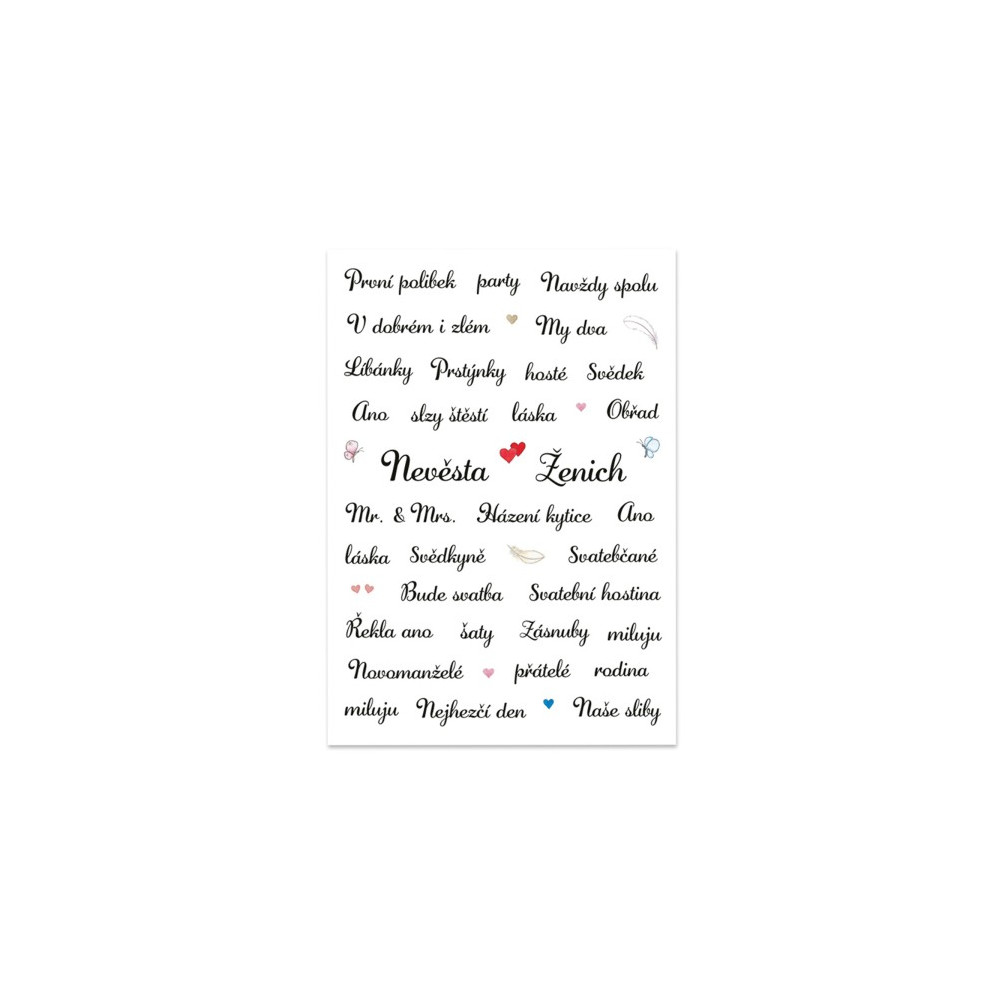 První polibek party Navždy spolu
V dobrém i zlém My dva
Líbánky Prstýnky hosté Svědek
Ano slzy štěstí láska Obřad
Nevěsta Ženich
Mr. & Mrs. Házení kytice Ano
láska Svědkyně Svatebčané
Bude svatba Svatební hostina
Řekla ano šaty Zásnuby miluju
Novomanželé přátelé rodina
miluju Nejhezčí den Naše sliby